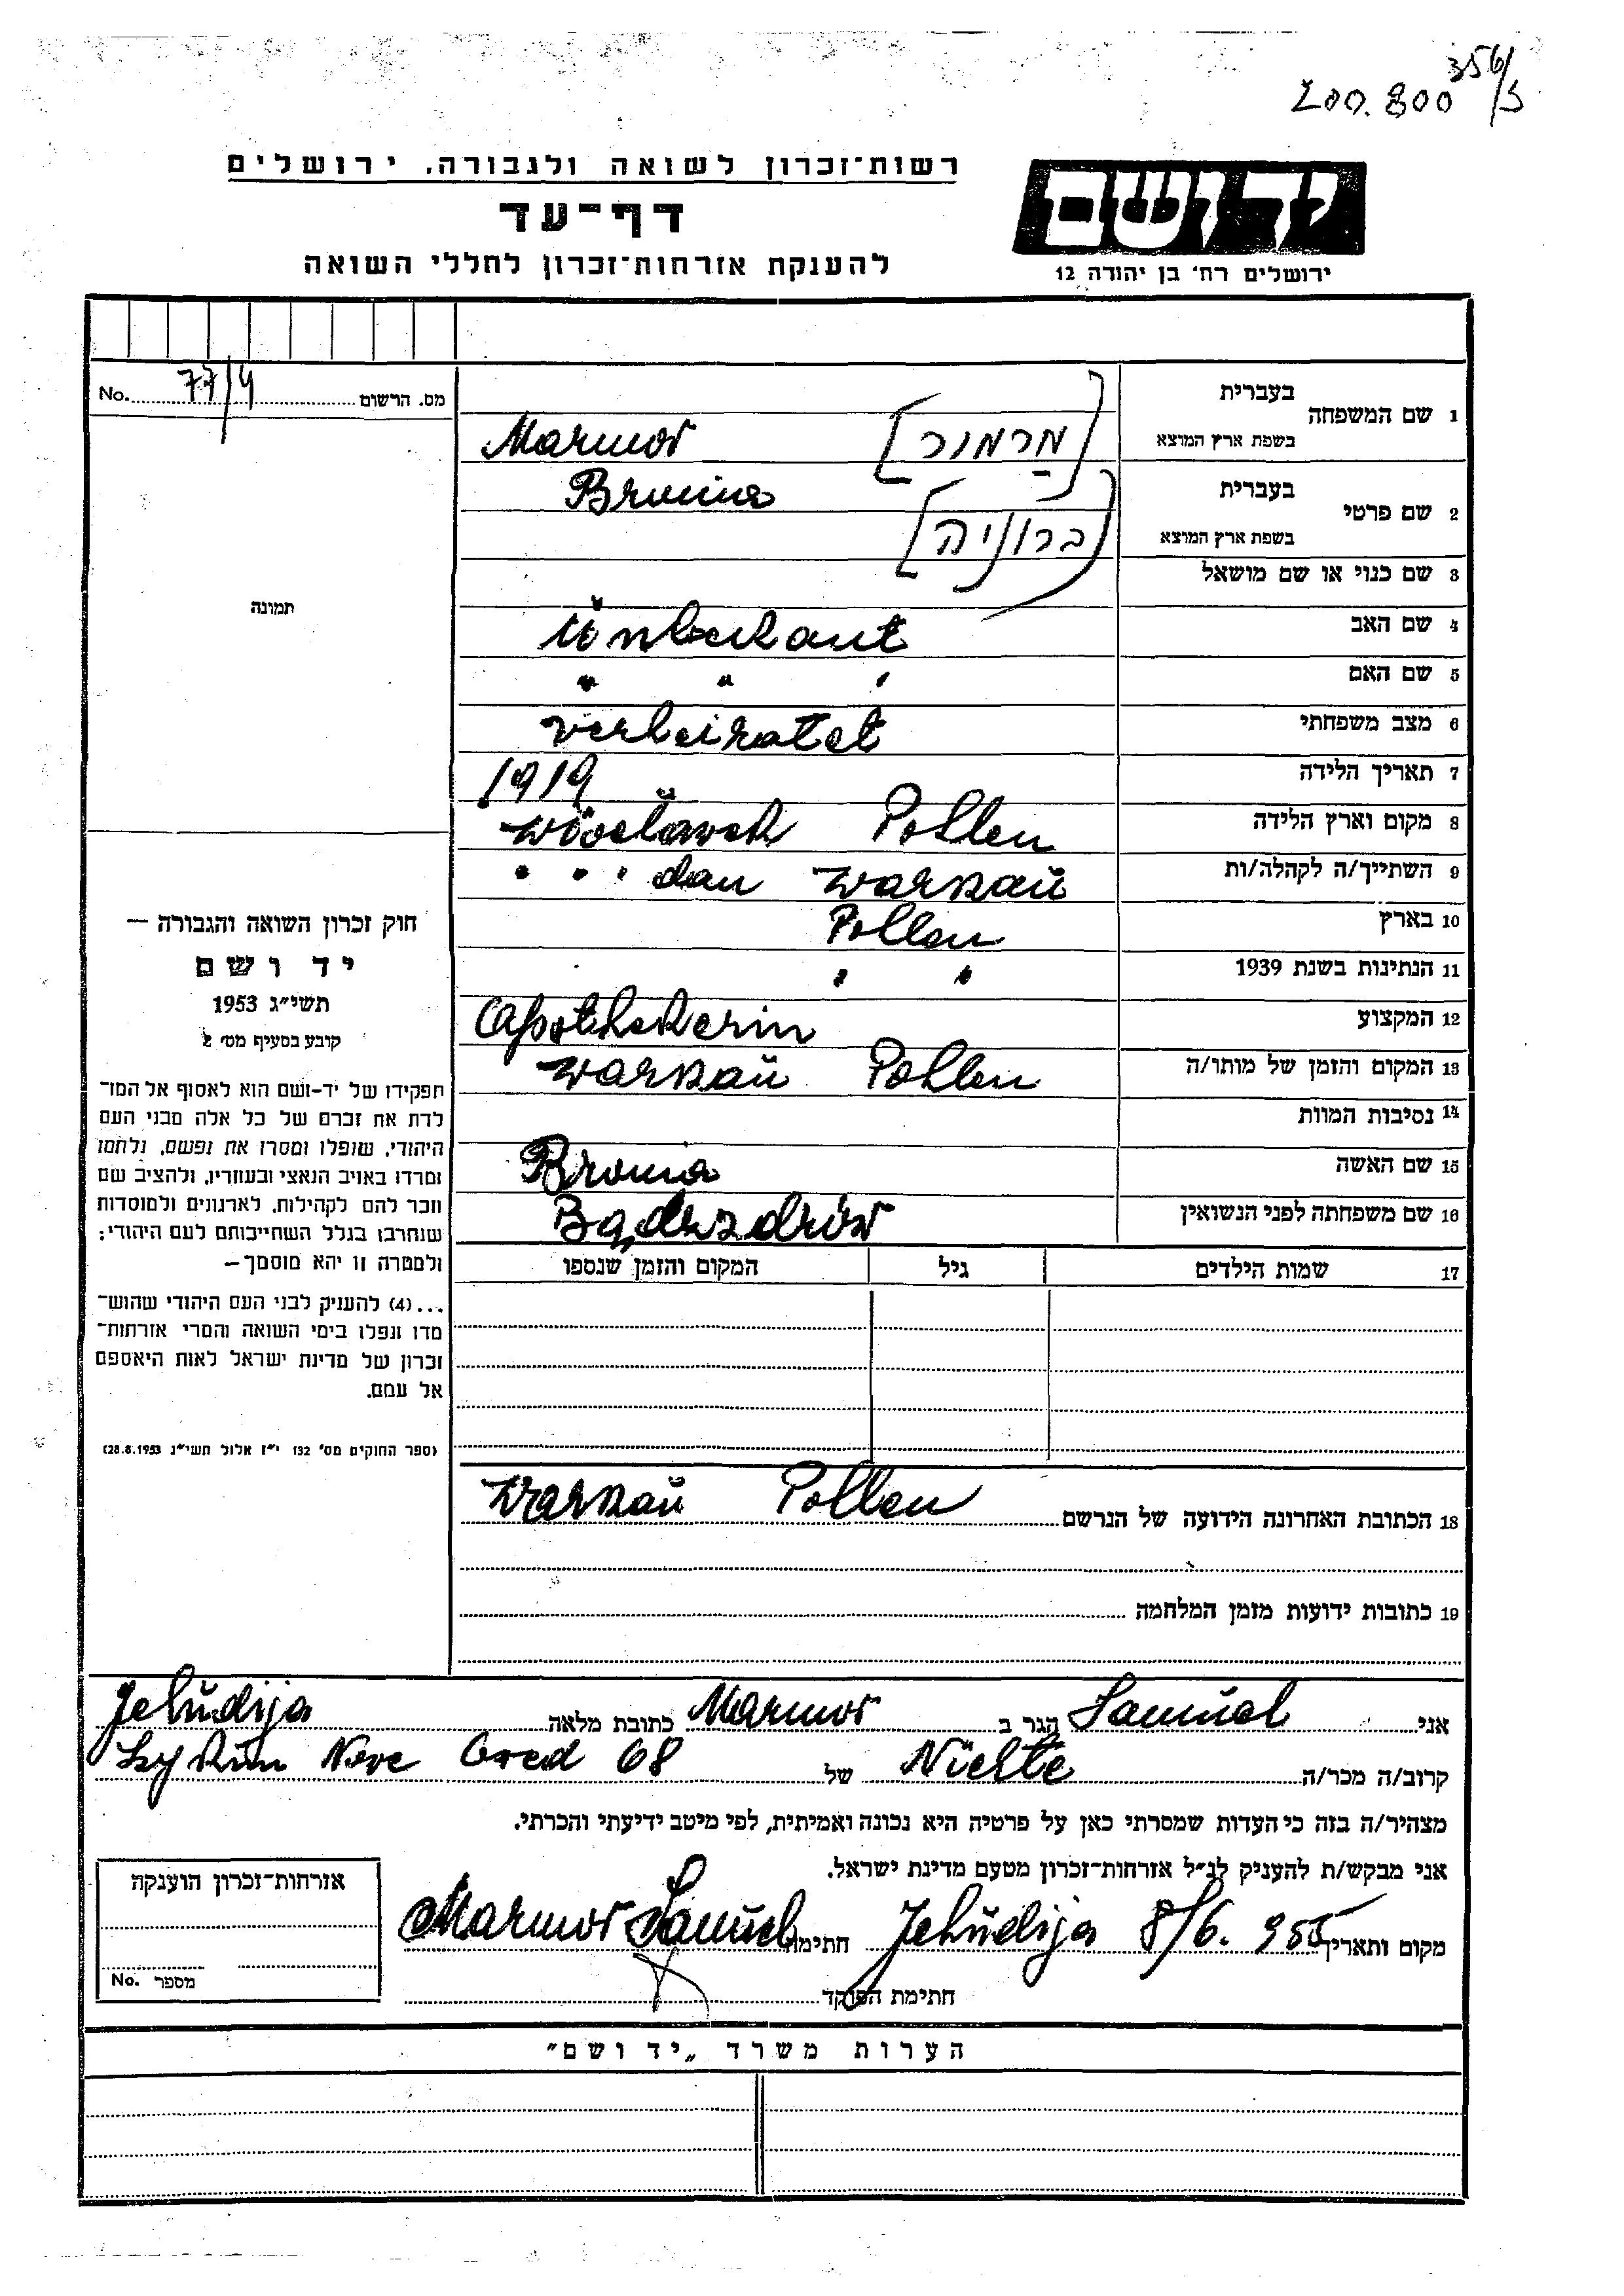 356/5
200.800
רשות־זכרון לשואה ולגבורה, ירושלים
דף־עד
להענקת אזרחות־זכרון לחללי השואה
יד ושם
ירושלים רח' בן יהודה 12
מס. הרשום 77/4 No.
1 שם המשפחה
בעברית
[מרמור]
בשפת ארץ המוצא
Marmor
2 שם פרטי
בעברית
Bronina
בשפת ארץ המוצא
[ברוניה]
3 שם כנוי או שם מושאל
4 שם האב
Ŭnbekant
5 שם האם
" " "
6 מצב משפחתי
verheiratet
7 תאריך הלידה
1919
8 מקום וארץ הלידה
Pohlen
9 השתייך/ה לקהלה/ות
" " " dan Warszaŭ
10 בארץ
Pollen
11 הנתינות בשנת 1939
" "
12 המקצוע
Apothekerin
13 המקום והזמן של מותו/ה
Warszaŭ Pohlen
14 נסיבות המוות
15 שם האשה
Bronia
16 שם משפחתה לפני הנשואין
17 שמות הילדים
גיל
המקום והזמן שנספו
18 הכתובת האחרונה הידועה של הנרשם
Warszaŭ Pohlen
19 כתובות ידועות מזמן המלחמה
תמונה
חוק זכרון השואה והגבורה —
יד ושם
תשי״ג 1953
קובע בסעיף מס׳ 2
תפקידו של יד-ושם הוא לאסוף אל המו־
לדת את זכרם של כל אלה מבני העם
היהודי, שנפלו ומסרו את נפשם, נלחמו
ומרדו באויב הנאצי ובעוזריו, ולהציב שם
וזכר להם לקהילות, לארגונים ולמוסדות
שנחרבו בגלל השתייכותם לעם היהודי;
ולמטרה זו יהא מוסמך —
...(4) להענק לבני העם היהודי שהוש־
מדו ונפלו בימי השואה והמרי אזרחות־
זכרון של מדינת ישראל לאות היאספם
אל עמם.
(ספר החוקים מס׳ 132 י״ז אלול תשי״ג 28.8.1953)
אני Samŭel Marmor הגר ב כתובת מלאה Jehŭdija
קרוב/ה מכר/ה של Neve Oved 68
מצהיר/ה בזה כי העדות שמסרתי כאן על פרטיה היא נכונה ואמיתית, לפי מיטב ידיעתי והכרתי.
אני מבקש/ת להעניק לנ״ל אזרחות־זכרון מטעם מדינת ישראל.
מקום ותאריך Jehŭdija 8/6. 955 חתימה Marmor Samŭel
חתימת הפוקד
אזרחות־זכרון הוענקה
מספר No.
הערות משרד „יד ושם״